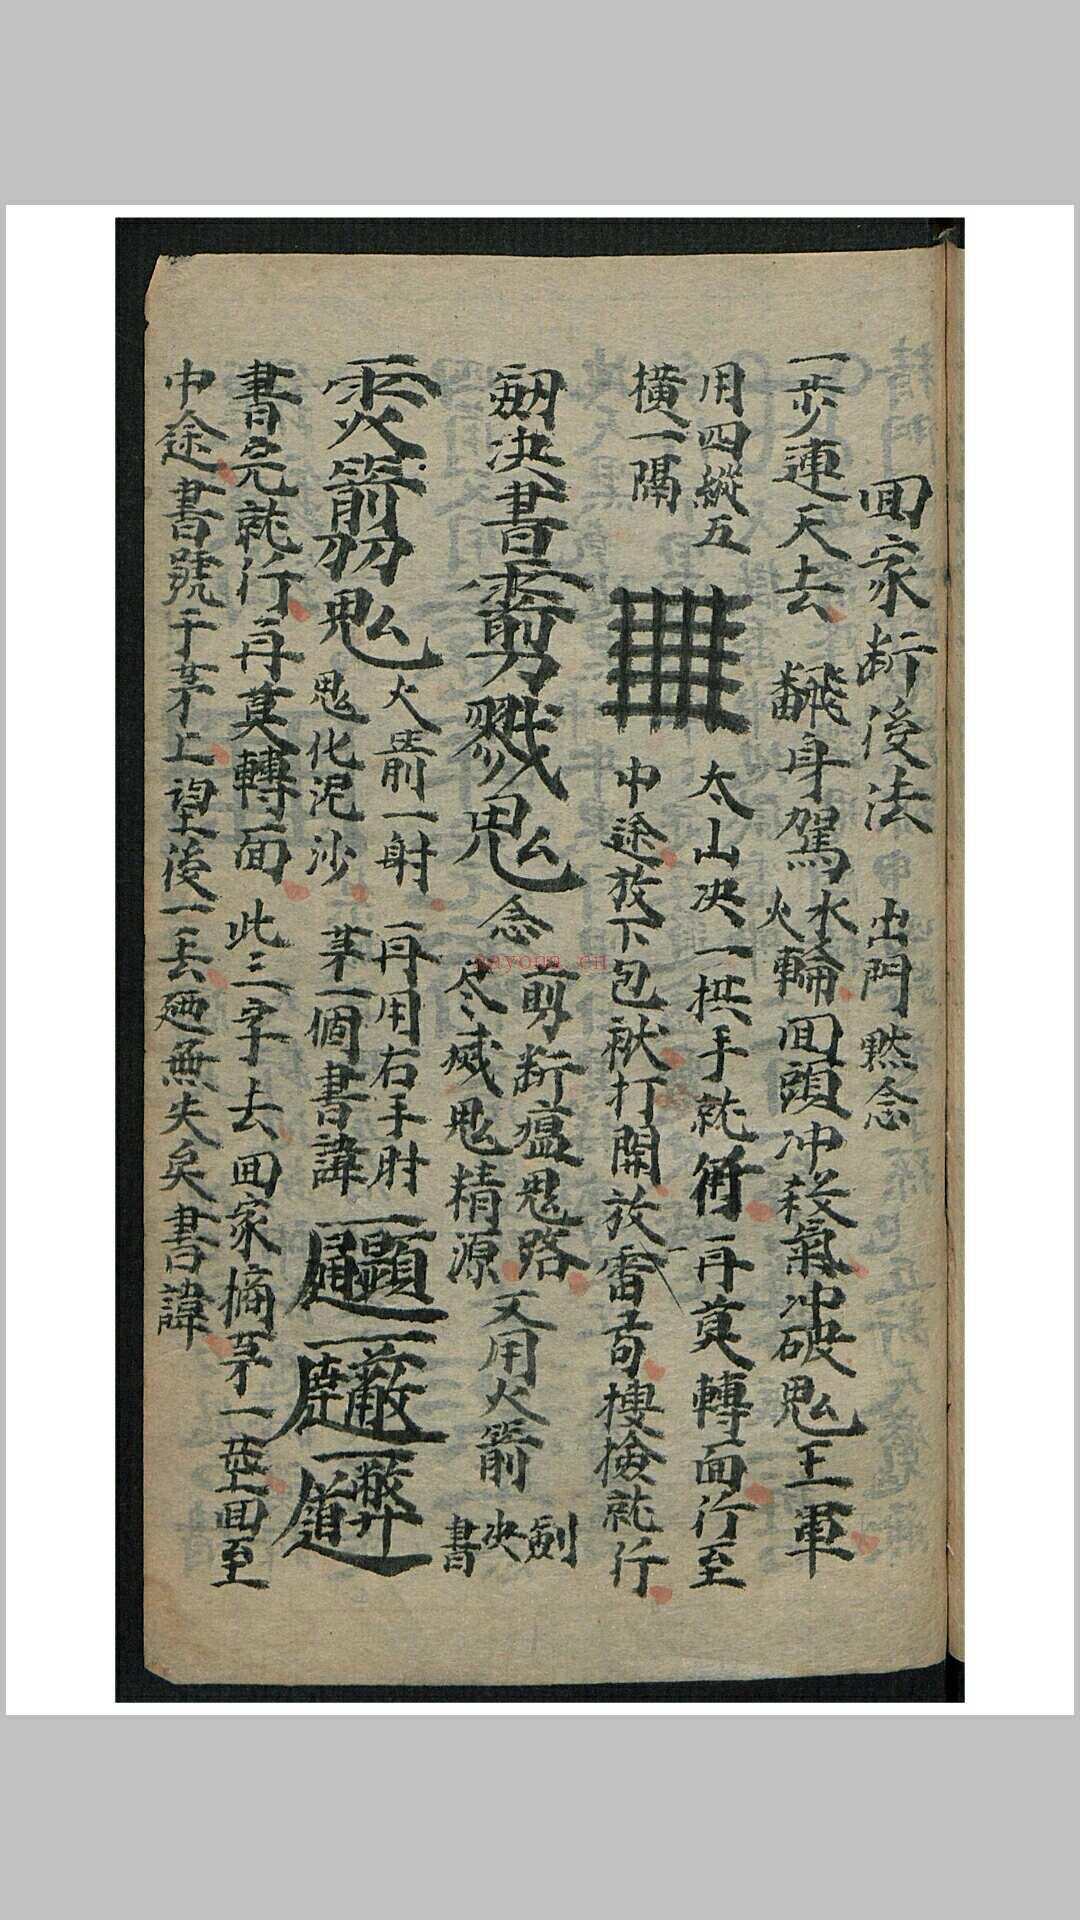 回家断後法 出門黙念
一步連天去 飜身駕水火輪回頭冲殺氣冲破鬼王軍
用四縱五
橫一隔
太山决一拱手就行再莫轉面行至
中途放下包袱打開放香
檢就行
劒决書
鬼念 剪断瘟鬼路
滅鬼精源
又用火箭
劍决書
火箭
鬼 火箭一射
鬼化泥沙
再用右手肘
茅一個書諱
書完就行再莫轉面 此三字去回家摘茅一莖回至
中途書號于茅上望後一丢
無失矣書諱
nayona.cn